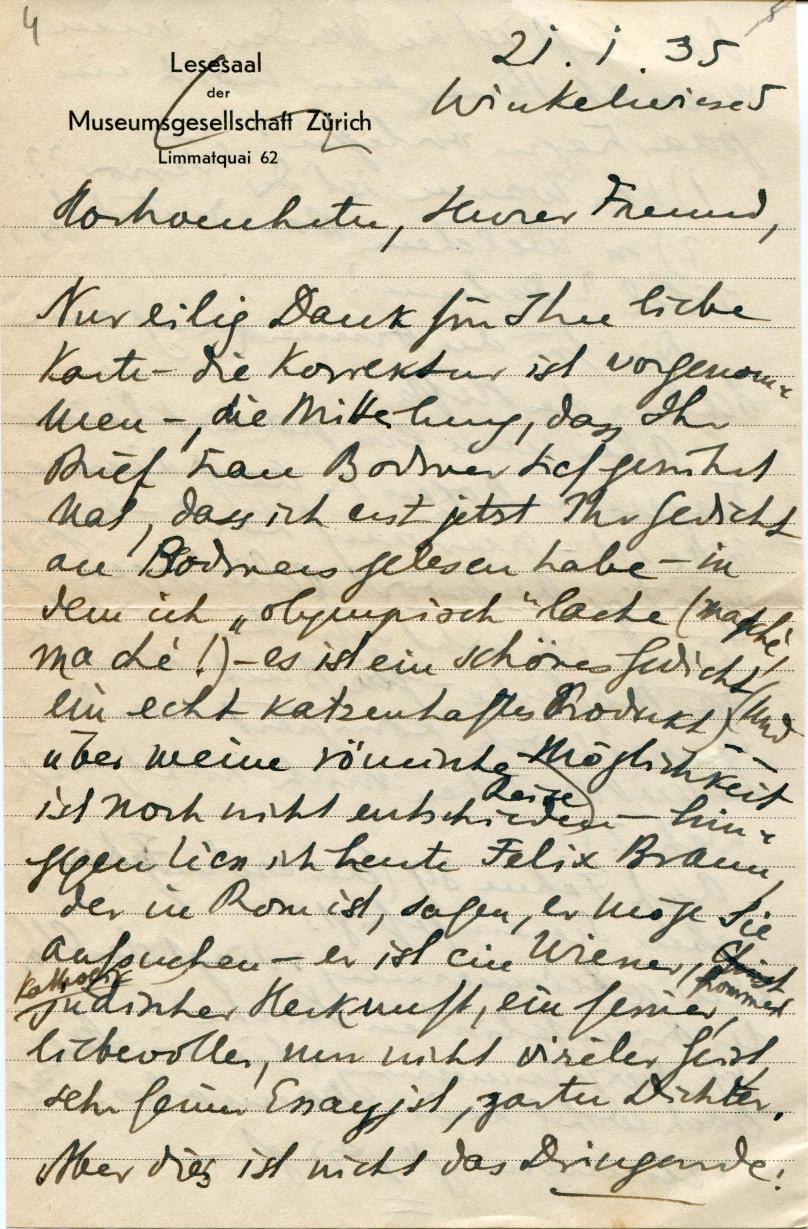 4
Lesesaal
der
Museumsgesellschaft Zürich
Limmatquai 62
21. 1. 35
Winkelwiese 5
Hochverehrter, teurer Freund,
Nur eilig Dank für Ihre liebe
Karte – die Korrektur ist vorgenom-
men –, die Mitteilung, dass Ihr
Brief Frau Bodmer tief gerührt
hat, dass ich erst jetzt Ihr Gedicht
an Bodmers gelesen habe – in
dem ich „olympisch“ lache (macché!
macché!) – es ist ein schönes Gedicht,
ein echt katzenhaftes Produkt) (und
über meine römische Möglichkeit
Reise
ist noch nicht entschieden) – hin-
gegen liess ich heute Felix Braun,
der in Rom ist, sagen, er möge Sie
aufsuchen – er ist ein Wiener,
frommer
Katholik
jüdischer Herkunft, ein feiner,
liebevoller, nur nicht viriler Geist,
sehr feiner Essayist, zarter Dichter.
Aber dies ist nicht das Dringende: